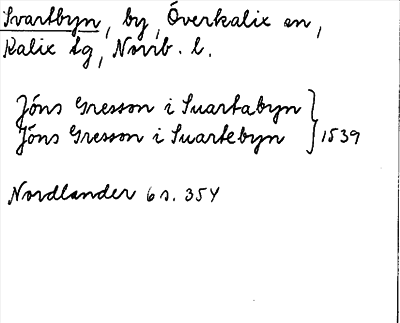 Svartbyn, by, Överkalix sn,
Kalix tg, Norrb. l.
Jöns Gresson i Suartabyn
Jöns Gresson i Suartebyn } 1539
Nordlander 6 s. 354